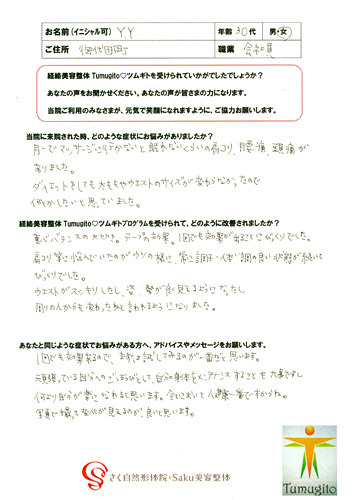 お名前(イニシャル可) YY 年齢 30代 男・女
ご住所 職業 会社員
経絡美容整体 Tumugito♡ツムギトを受けられていかがでしたでしょうか？
あなたの声をお聞かせください。あなたの声が皆さまの力になります。
当院ご利用のみなさまが、元気で笑顔になれますように、ご協力お願いします。
当院に来院された時、どのような症状にお悩みがありましたか？
月一でマッサージに行かないと眠れないくらいの肩コリ、腰痛、頭痛が
ありました。
ダイエットをしても太ももやウエストのサイズが変わらなかったので
何とかしたいと思っていました。
経絡美容整体 Tumugito♡ツムギトプログラムを受けられて、どのように改善されましたか？
重心バランスの大切さ。テープの効果。1回でも効果が出ることにびっくりでした。
肩コリ 常に悩んでいたのがウソの様に、常に調子いい状態が続いて
びっくりでした。
ウエストがスッキリしたし、姿勢が良く見えるようになったし
周りの人からも変わったねと言われるようになりました。
あなたと同じような症状でお悩みがある方へ、アドバイスやメッセージをお願いします。
1回でも効果あるので、まずはお試ししてみるのが一番だと思います。
頑張っている自分へのごほうびとして、自分の身体をメンテナンスすることも大事ですし
何より自分が楽になれると思います。全てにおいて健康一番ですからね。
写真で撮って変化が見えるのが、良いと思います。
さく自然形体院・Saku美容整体
Tumugito